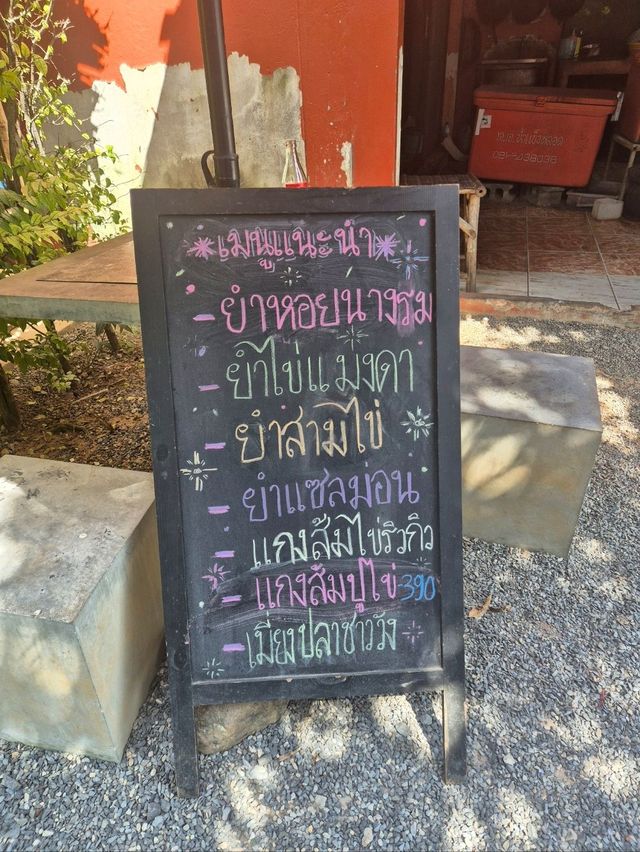 เมนูแนะนำ
- ยำหอยนางรม
- ยำไข่แมงดา
- ยำสามไข่
- ยำแซลม่อน
- แกงส้มไข่ริวกิว
- แกงส้มปูไข่ 390
- เมี่ยงปลาชาววัง